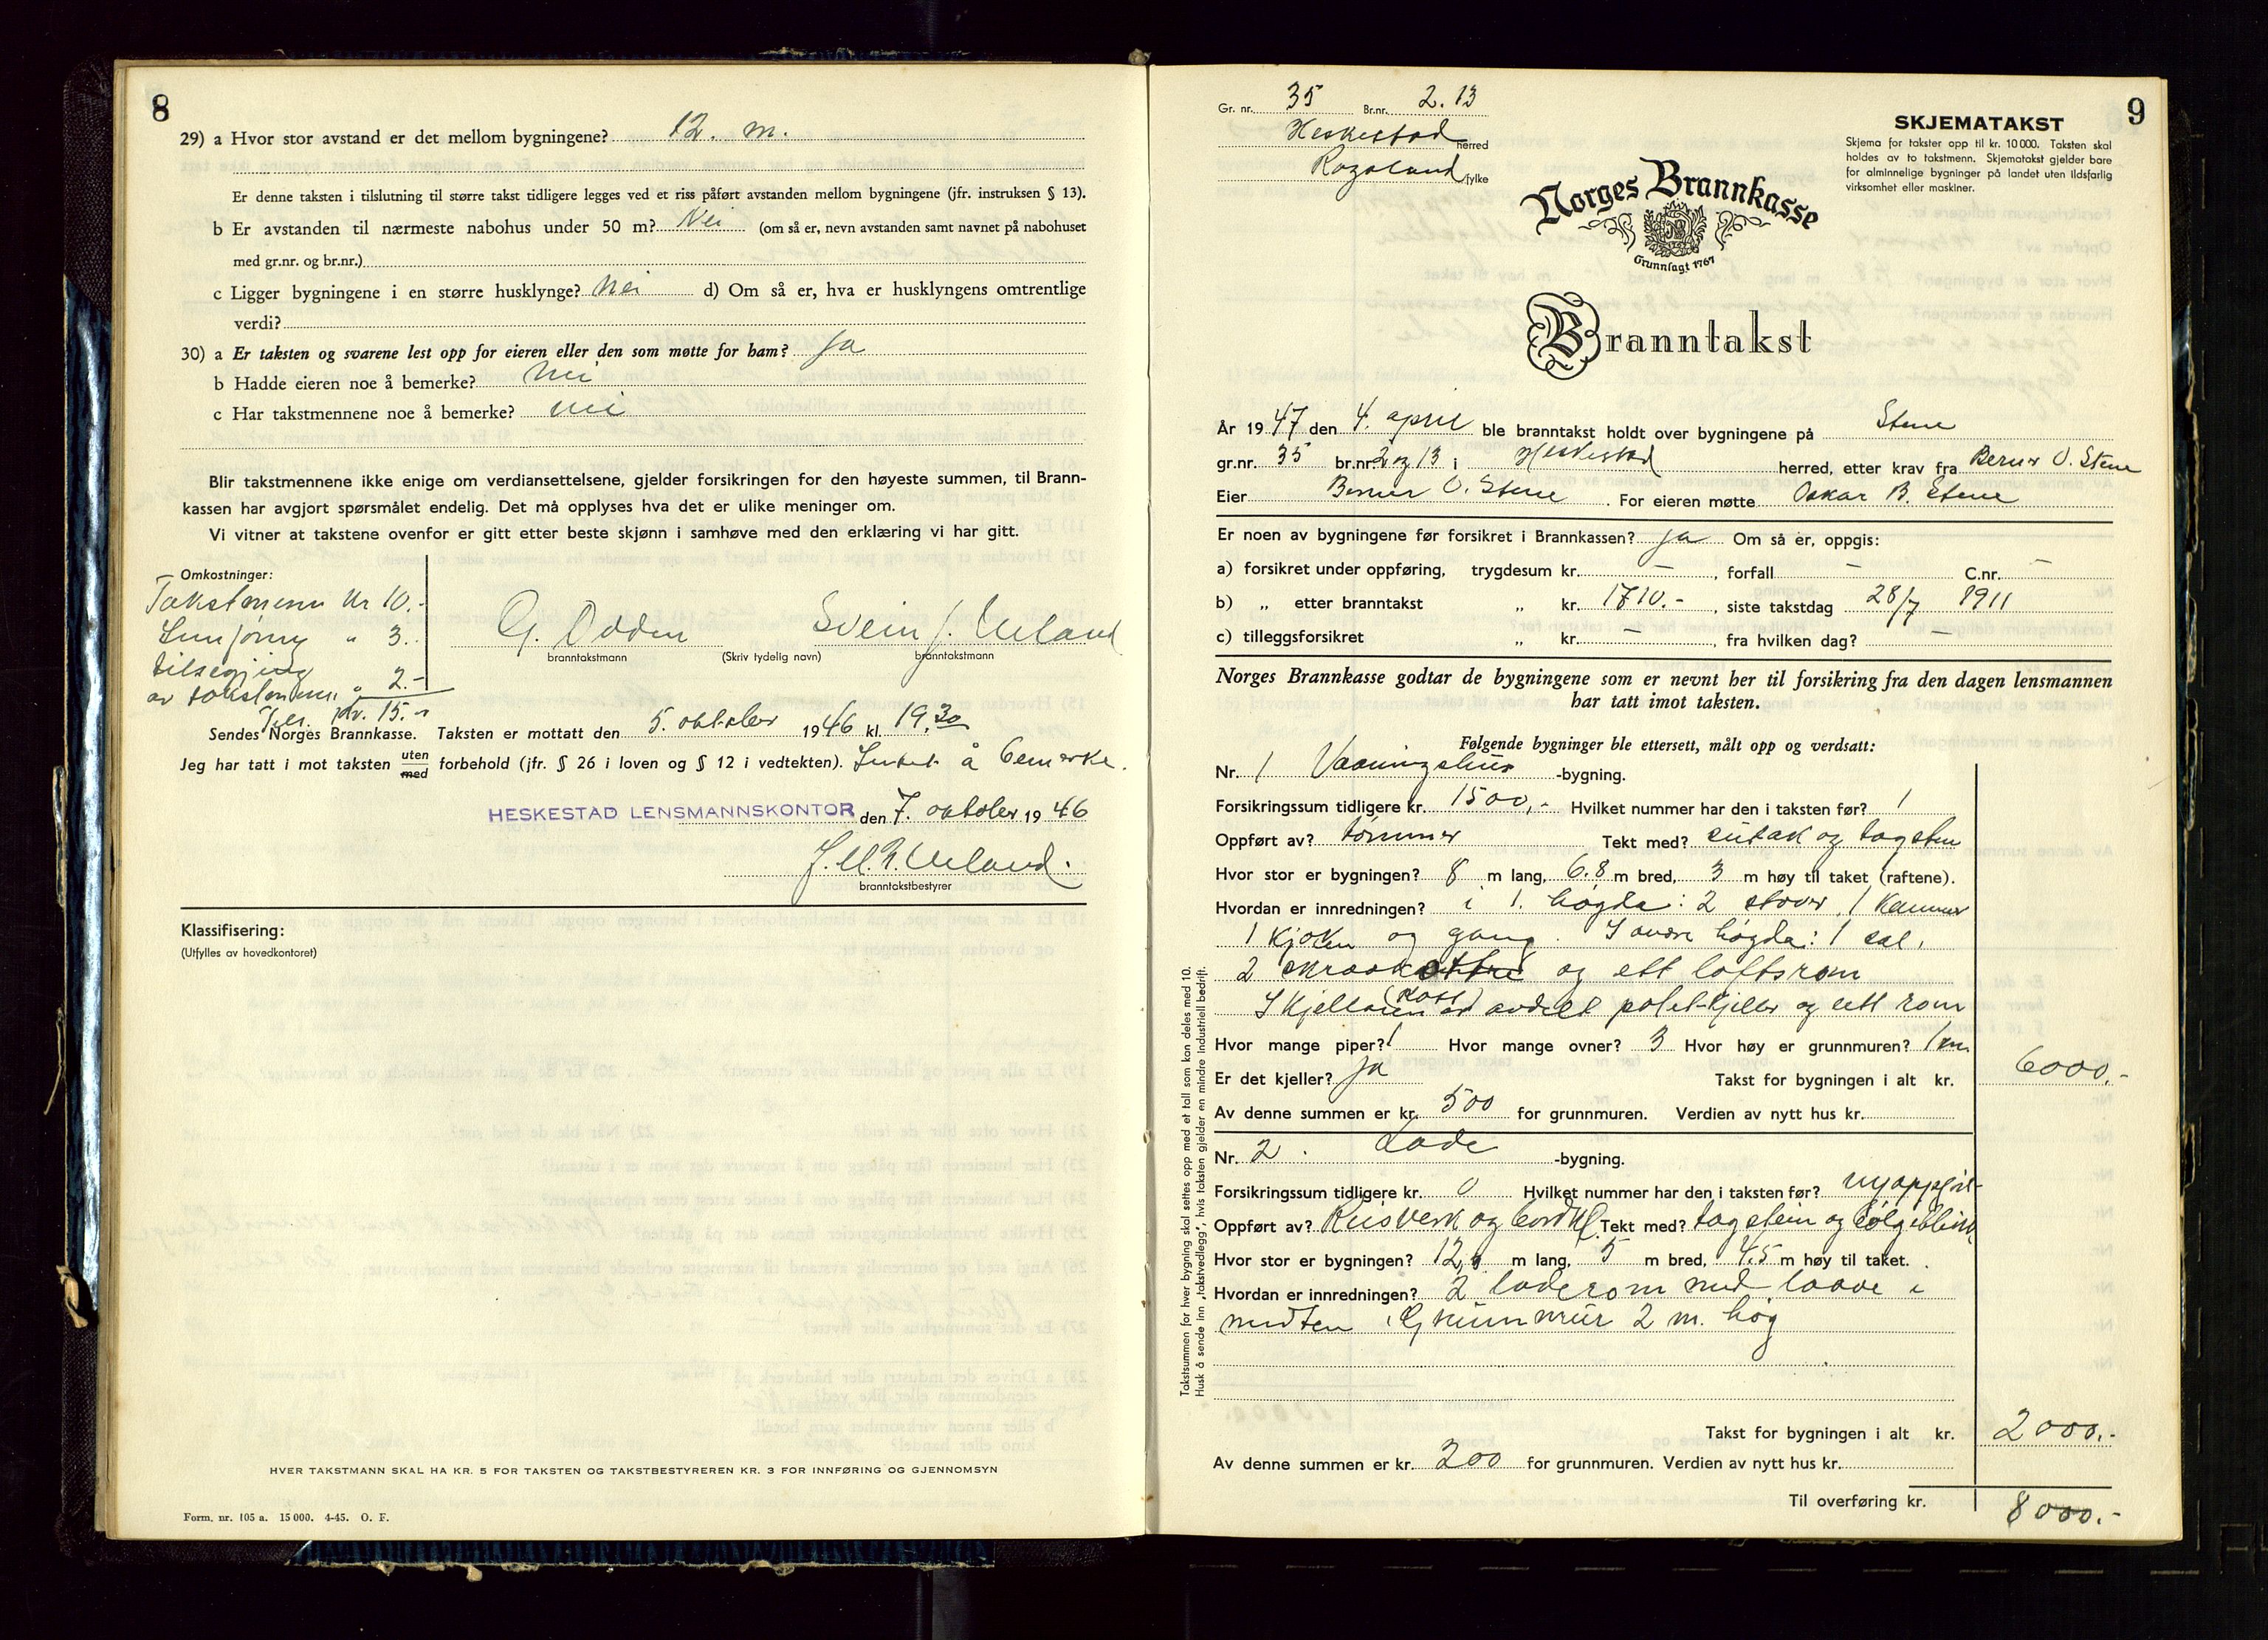 8
29) a Hvor stor avstand er det mellom bygningene? 12. m.
Er denne taksten i tilslutning til større takst tidligere legges ved et riss påført avstanden mellom bygningene (jfr. instruksen § 13).
b Er avstanden til nærmeste nabohus under 50 m? Nei (om så er, nevn avstanden samt navnet på nabohuset
med gr.nr. og br.nr.)
c Ligger bygningene i en større husklynge? Nei d) Om så er, hva er husklyngens omtrentlige
verdi?
30) a Er taksten og svarene lest opp for eieren eller den som møtte for ham? ja
b Hadde eieren noe å bemerke? nei
c Har takstmennene noe å bemerke? nei
Blir takstmennene ikke enige om verdiansettelsene, gjelder forsikringen for den høyeste summen, til Brann-
kassen har avgjort spørsmålet endelig. Det må opplyses hva det er ulike meninger om.
Vi vitner at takstene ovenfor er gitt etter beste skjønn i samhøve med den erklæring vi har gitt.
Omkostninger:
Takstmenn Kr 10.-
" 3.
tilsegjing
av takstmenn. " 2.-
Kr. 15.-
G. Odden Svein J. Ueland
branntakstmann (Skriv tydelig navn) branntakstmann
Sendes Norges Brannkasse. Taksten er mottatt den 5. oktober 1946 kl. 19.30
Jeg har tatt i mot taksten uten/med forbehold (jfr. § 26 i loven og § 12 i vedtekten). Intet å bemerke.
HESKESTAD LENSMANNSKONTOR den 7. oktober 1946
Ueland.
branntakstbestyrer
Klassifisering:
(Utfylles av hovedkontoret)
HVER TAKSTMANN SKAL HA KR. 5 FOR TAKSTEN OG TAKSTBESTYREREN KR. 3 FOR INNFØRING OG GJENNOMSYN
Form. nr. 105 a. 15 000. 4-45. O. F.
9
Gr. nr. 35 Br.nr. 2. 13
Heskestad herred
Rogaland fylke
SKJEMATAKST
Skjema for takster opp til kr. 10 000. Taksten skal
holdes av to takstmenn. Skjematakst gjelder bare
for alminnelige bygninger på landet uten ildsfarlig
virksomhet eller maskiner.
Norges Brannkasse
Grunnlagt 1767
Branntakst
År 1947 den 4. april ble branntakst holdt over bygningene på Stene
gr.nr. 35 br.nr. 2 og 13 i Heskestad herred, etter krav fra Berner O. Stene
Eier Berner O. Stene. For eieren møtte Oskar B. Stene
Er noen av bygningene før forsikret i Brannkassen? ja Om så er, oppgis:
a) forsikret under oppføring, trygdesum kr. – , forfall – C.nr. –
b) „ etter branntakst „ kr. 1710.- , siste takstdag 28/7 1911
c) tilleggsforsikret „ kr. – , fra hvilken dag? –
Norges Brannkasse godtar de bygningene som er nevnt her til forsikring fra den dagen lensmannen
har tatt imot taksten.
Følgende bygninger ble ettersett, målt opp og verdsatt:
Nr. 1 Vaaningshus -bygning.
Forsikringssum tidligere kr. 1500,- Hvilket nummer har den i taksten før? 1
Oppført av? tømmer Tekt med? sutak og tagsten
Hvor stor er bygningen? 8 m lang, 6.8 m bred, 3 m høy til taket (raftene).
Hvordan er innredningen? i 1. høgda: 2 stover, 1 kammer
1 kjøken og gang. I andre høgda: 1 sal,
2 og ett loftsrom
I kjelleren er avdelt potetkjeller og ett rom
Hvor mange piper? 1 Hvor mange ovner? 3 Hvor høy er grunnmuren? 1 m
Er det kjeller? ja Takst for bygningen i alt kr. 6000.-
Av denne summen er kr. 500 for grunnmuren. Verdien av nytt hus kr.
Nr. 2. Løde -bygning.
Forsikringssum tidligere kr. 0 Hvilket nummer har den i taksten før?
Oppført av? Reisverk og bordkl. Tekt med? tagstein og
Hvor stor er bygningen? 12, m lang, 5 m bred, 4.5 m høy til taket.
Hvordan er innredningen? 2 løderom med laave i
midten. Grunnmur 2 m. høg
Takst for bygningen i alt kr. 2000.-
Av denne summen er kr. 200 for grunnmuren. Verdien av nytt hus kr.
Til overføring kr. 8000.-
Takstsummen for hver bygning skal settes opp med et tall som kan deles med 10.
Husk å sende inn „takstvedlegg", hvis taksten gjelder en mindre industriell bedrift.